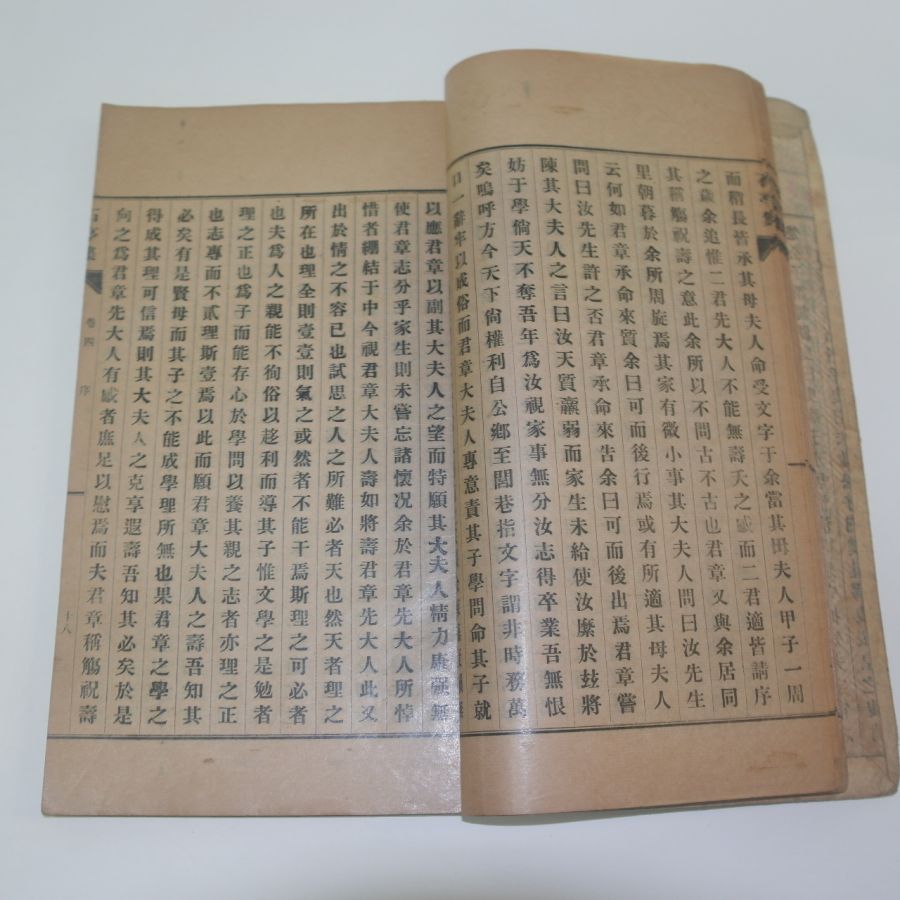 而稍長皆承其母夫人命受文字于余當其母夫人甲子一周
之歲余追惟二君先大人不能無壽夭之慼而二君適皆請序
其稱觴祝壽之意此余所以不問古不古也君章又與余居同
里朝暮於余所周旋焉其家有微小事其大夫人問曰汝先生
云何如君章承命來質余曰可而後行焉或有所適其母夫人
問曰汝先生許之否君章承命來告余曰可而後出焉君章嘗
陳其大夫人之言曰汝天質羸弱而家生未給使汝縻於玆將
妨于學倘天不奪吾年爲汝視家事無分汝志得卒業吾無恨
矣嗚呼方今天下尙權利自公鄕至閭巷指文字謂非時務萬
口一辭率以成俗而君章大夫人專意責其子學問命其子就
以應君章以副其大夫人之望而特願其大夫人精力康强無
使君章志分乎家生則未嘗忘諸懷况余於君章先大人所悼
惜者綢結于中今視君章大夫人壽如將壽君章先大人此又
出於情之不容已也試思之人之所難必者天也然天者理之
所在也理全則壹壹則氣之或然者不能干焉斯理之可必者
也夫爲人之親能不徇俗以趍利而導其子惟文學之是勉者
理之正也爲子而能存心於學問以養其親之志者亦理之正
也志專而不貳理斯壹焉以此而願君章大夫人之壽吾知其
必矣有是賢母而其子之不能成學理所無也果君章之學之
得成其理可信焉則其大夫人之克享遐壽吾知其必矣於是
向之爲君章先大人有慼者庶足以慰焉而夫君章稱觴祝壽
卷四 序 十八